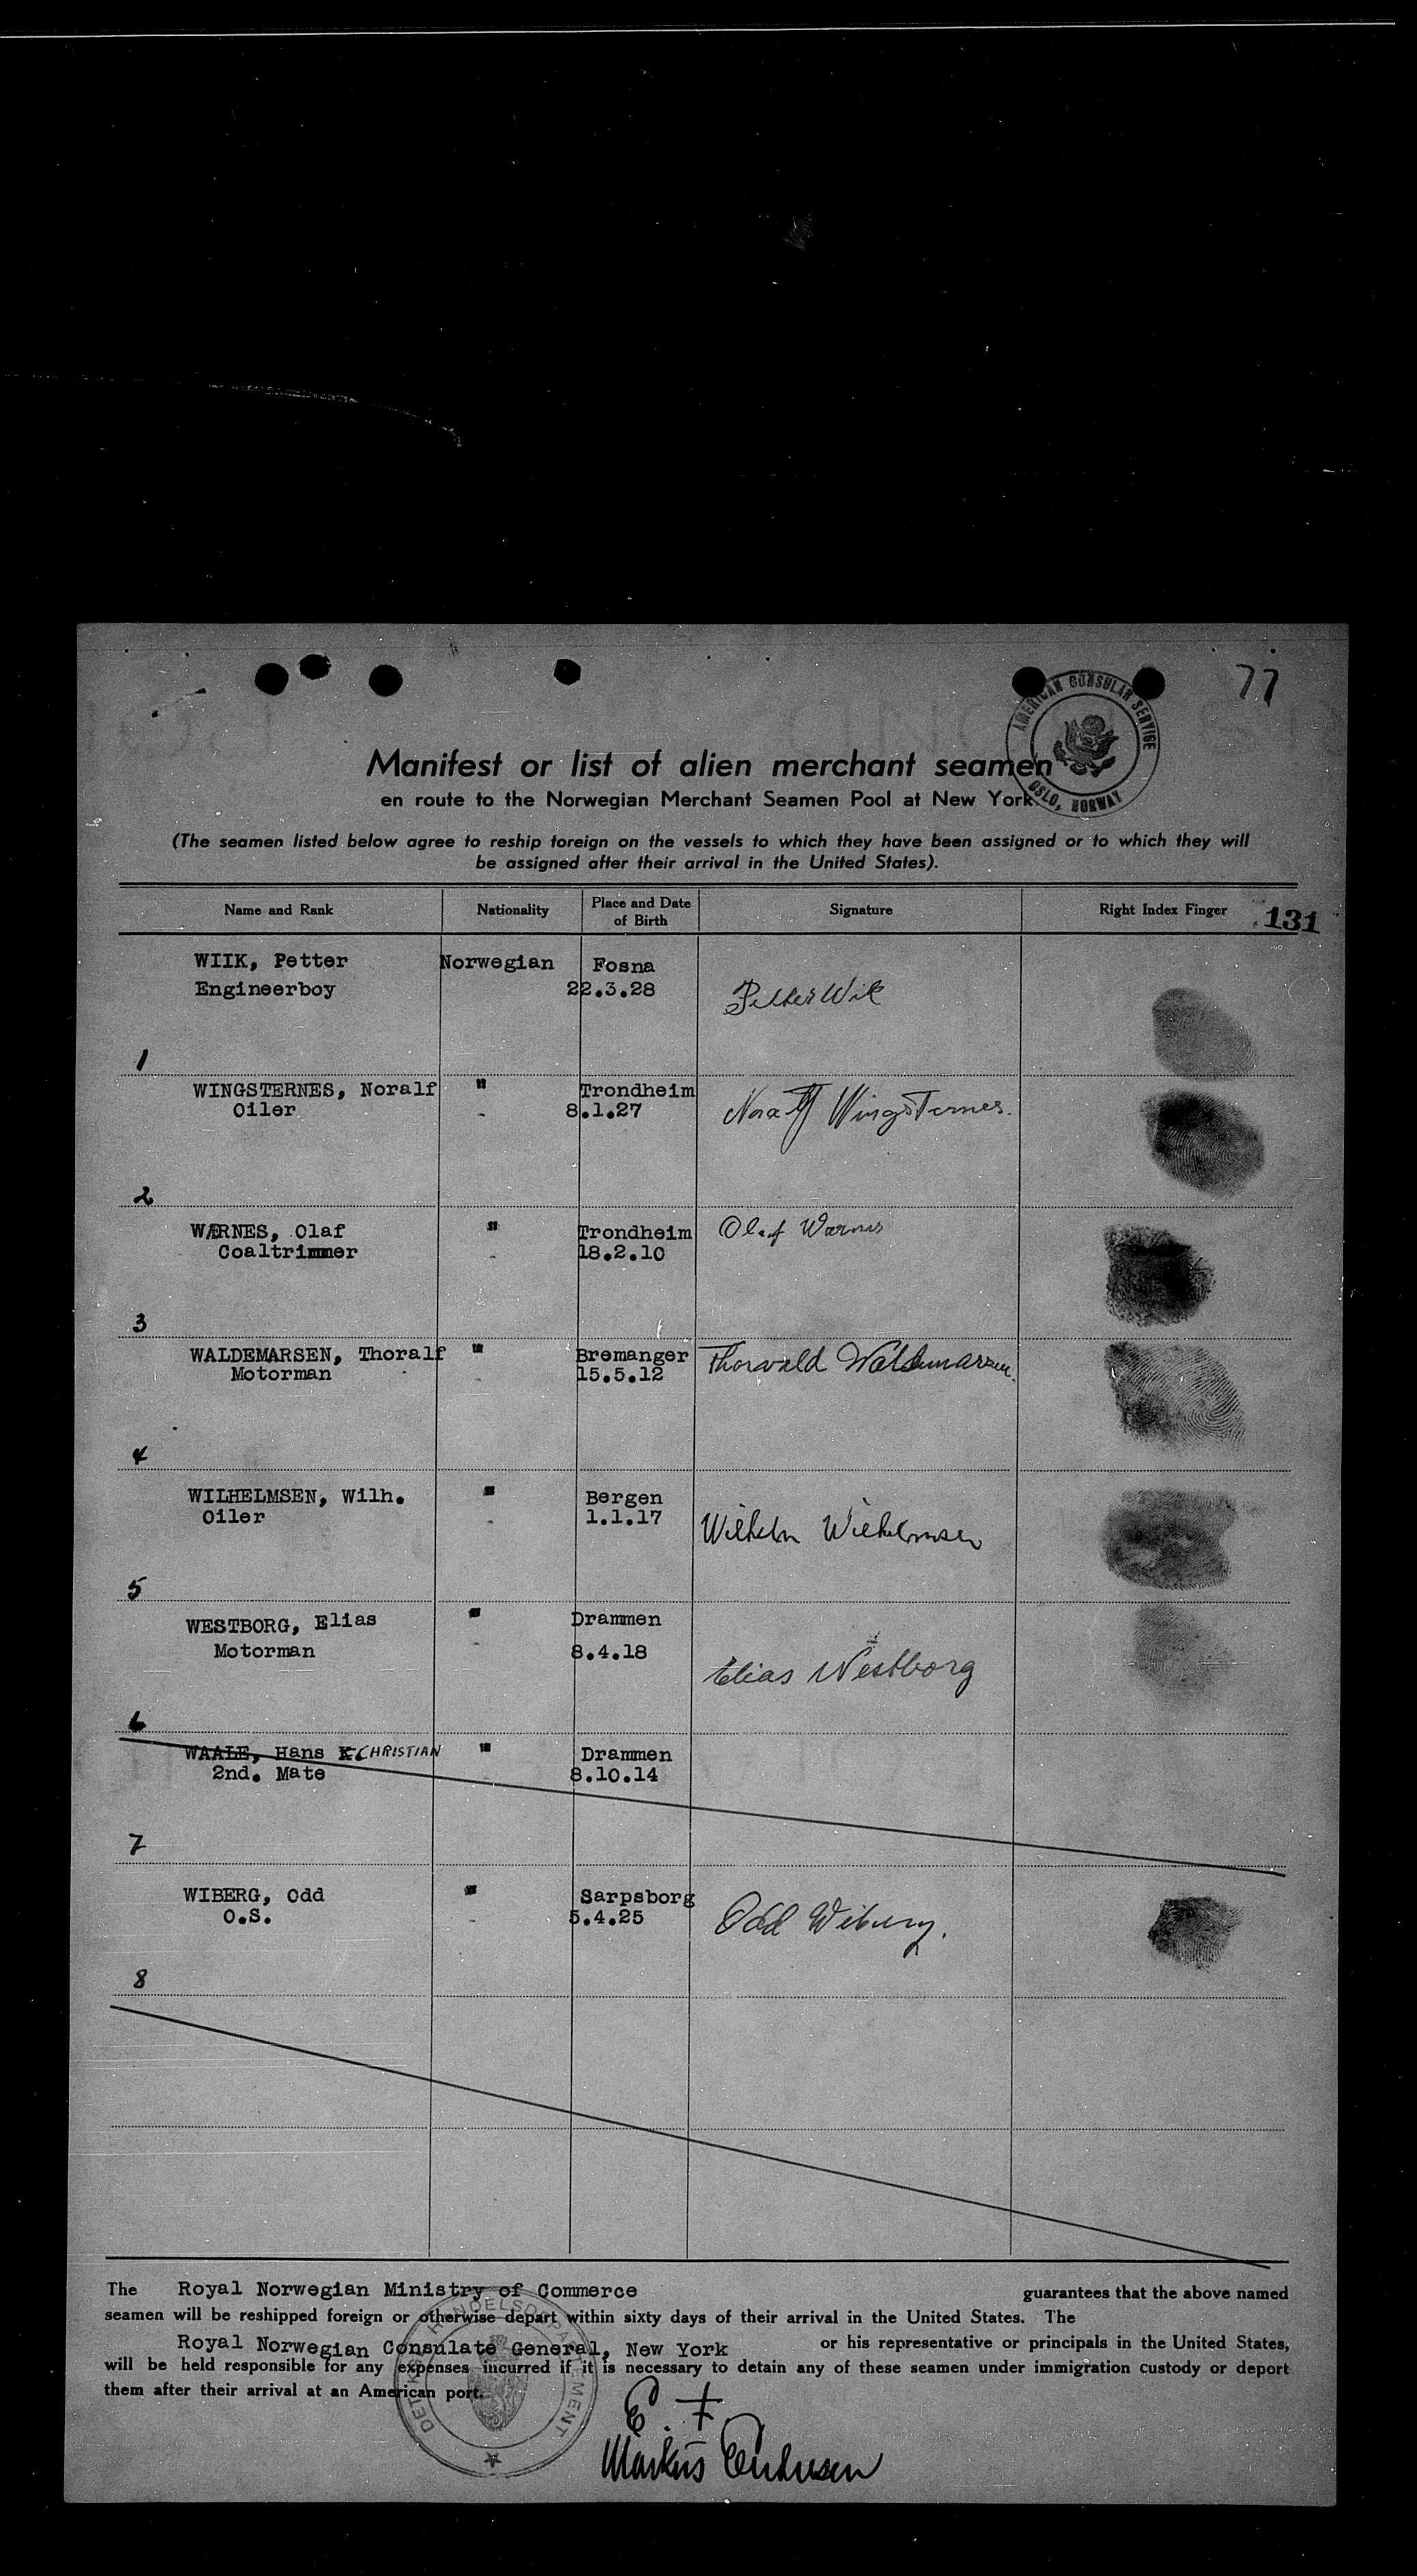 77
AMERICAN CONSULAR SERVICE
OSLO, NORWAY
Manifest or list of alien merchant seamen
en route to the Norwegian Merchant Seamen Pool at New York.
(The seamen listed below agree to reship foreign on the vessels to which they have been assigned or to which they will
be assigned after their arrival in the United States).
Name and Rank Nationality Place and Date of Birth Signature Right Index Finger 131
WIIK, Petter Norwegian Fosna
Engineerboy 22.3.28 Petter Wik
1
WINGSTERNES, Noralf " Trondheim
Oiler - 8.1.27 Noralf Wingsternes.
2
WÆRNES, Olaf " Trondheim Olaf Wærnes
Coaltrimmer - 18.2.10
3
WALDEMARSEN, Thoralf " Bremanger Thorvald Waldemarsen.
Motorman - 15.5.12
4
WILHELMSEN, Wilh. " Bergen
Oiler - 1.1.17 Wilhelm Wilhelmsen
5
WESTBORG, Elias " Drammen
Motorman - 8.4.18 Elias Westborg
6
WAALE, Hans K. CHRISTIAN " Drammen
2nd. Mate 8.10.14
7
WIBERG, Odd " Sarpsborg
O.S. - 5.4.25 Odd Wiberg.
8
The Royal Norwegian Ministry of Commerce guarantees that the above named
seamen will be reshipped foreign or otherwise depart within sixty days of their arrival in the United States. The
Royal Norwegian Consulate General, New York or his representative or principals in the United States,
will be held responsible for any expenses incurred if it is necessary to detain any of these seamen under immigration custody or deport
them after their arrival at an American port.
DET KGL. HANDELSDEPARTEMENT
E. f.
Markus